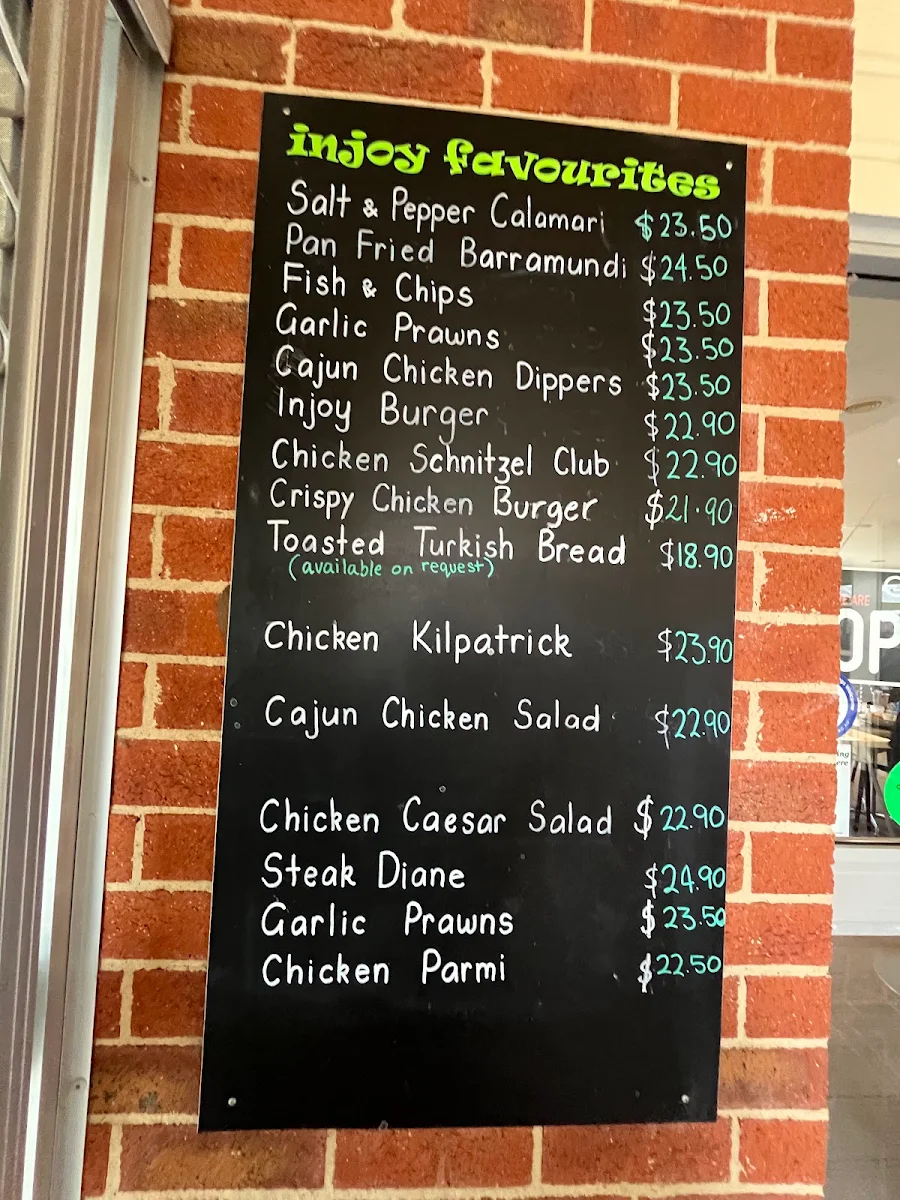 injoy favourites
Salt & Pepper Calamari $23.50
Pan Fried Barramundi $24.50
Fish & Chips $23.50
Garlic Prawns $23.50
Cajun Chicken Dippers $23.50
Injoy Burger $22.90
Chicken Schnitzel Club $22.90
Crispy Chicken Burger $21.90
Toasted Turkish Bread $18.90
(available on request)
Chicken Kilpatrick $23.90
Cajun Chicken Salad $22.90
Chicken Caesar Salad $22.90
Steak Diane $24.90
Garlic Prawns $23.50
Chicken Parmi $22.50
ARE
OP